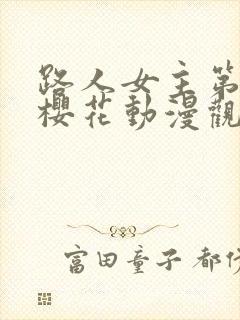 路人女主第
櫻花動漫觀
富田童子 都